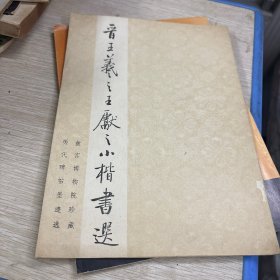 晋王羲之王獻之小楷書選
故宫博物院珍藏
历代碑帖墨迹选